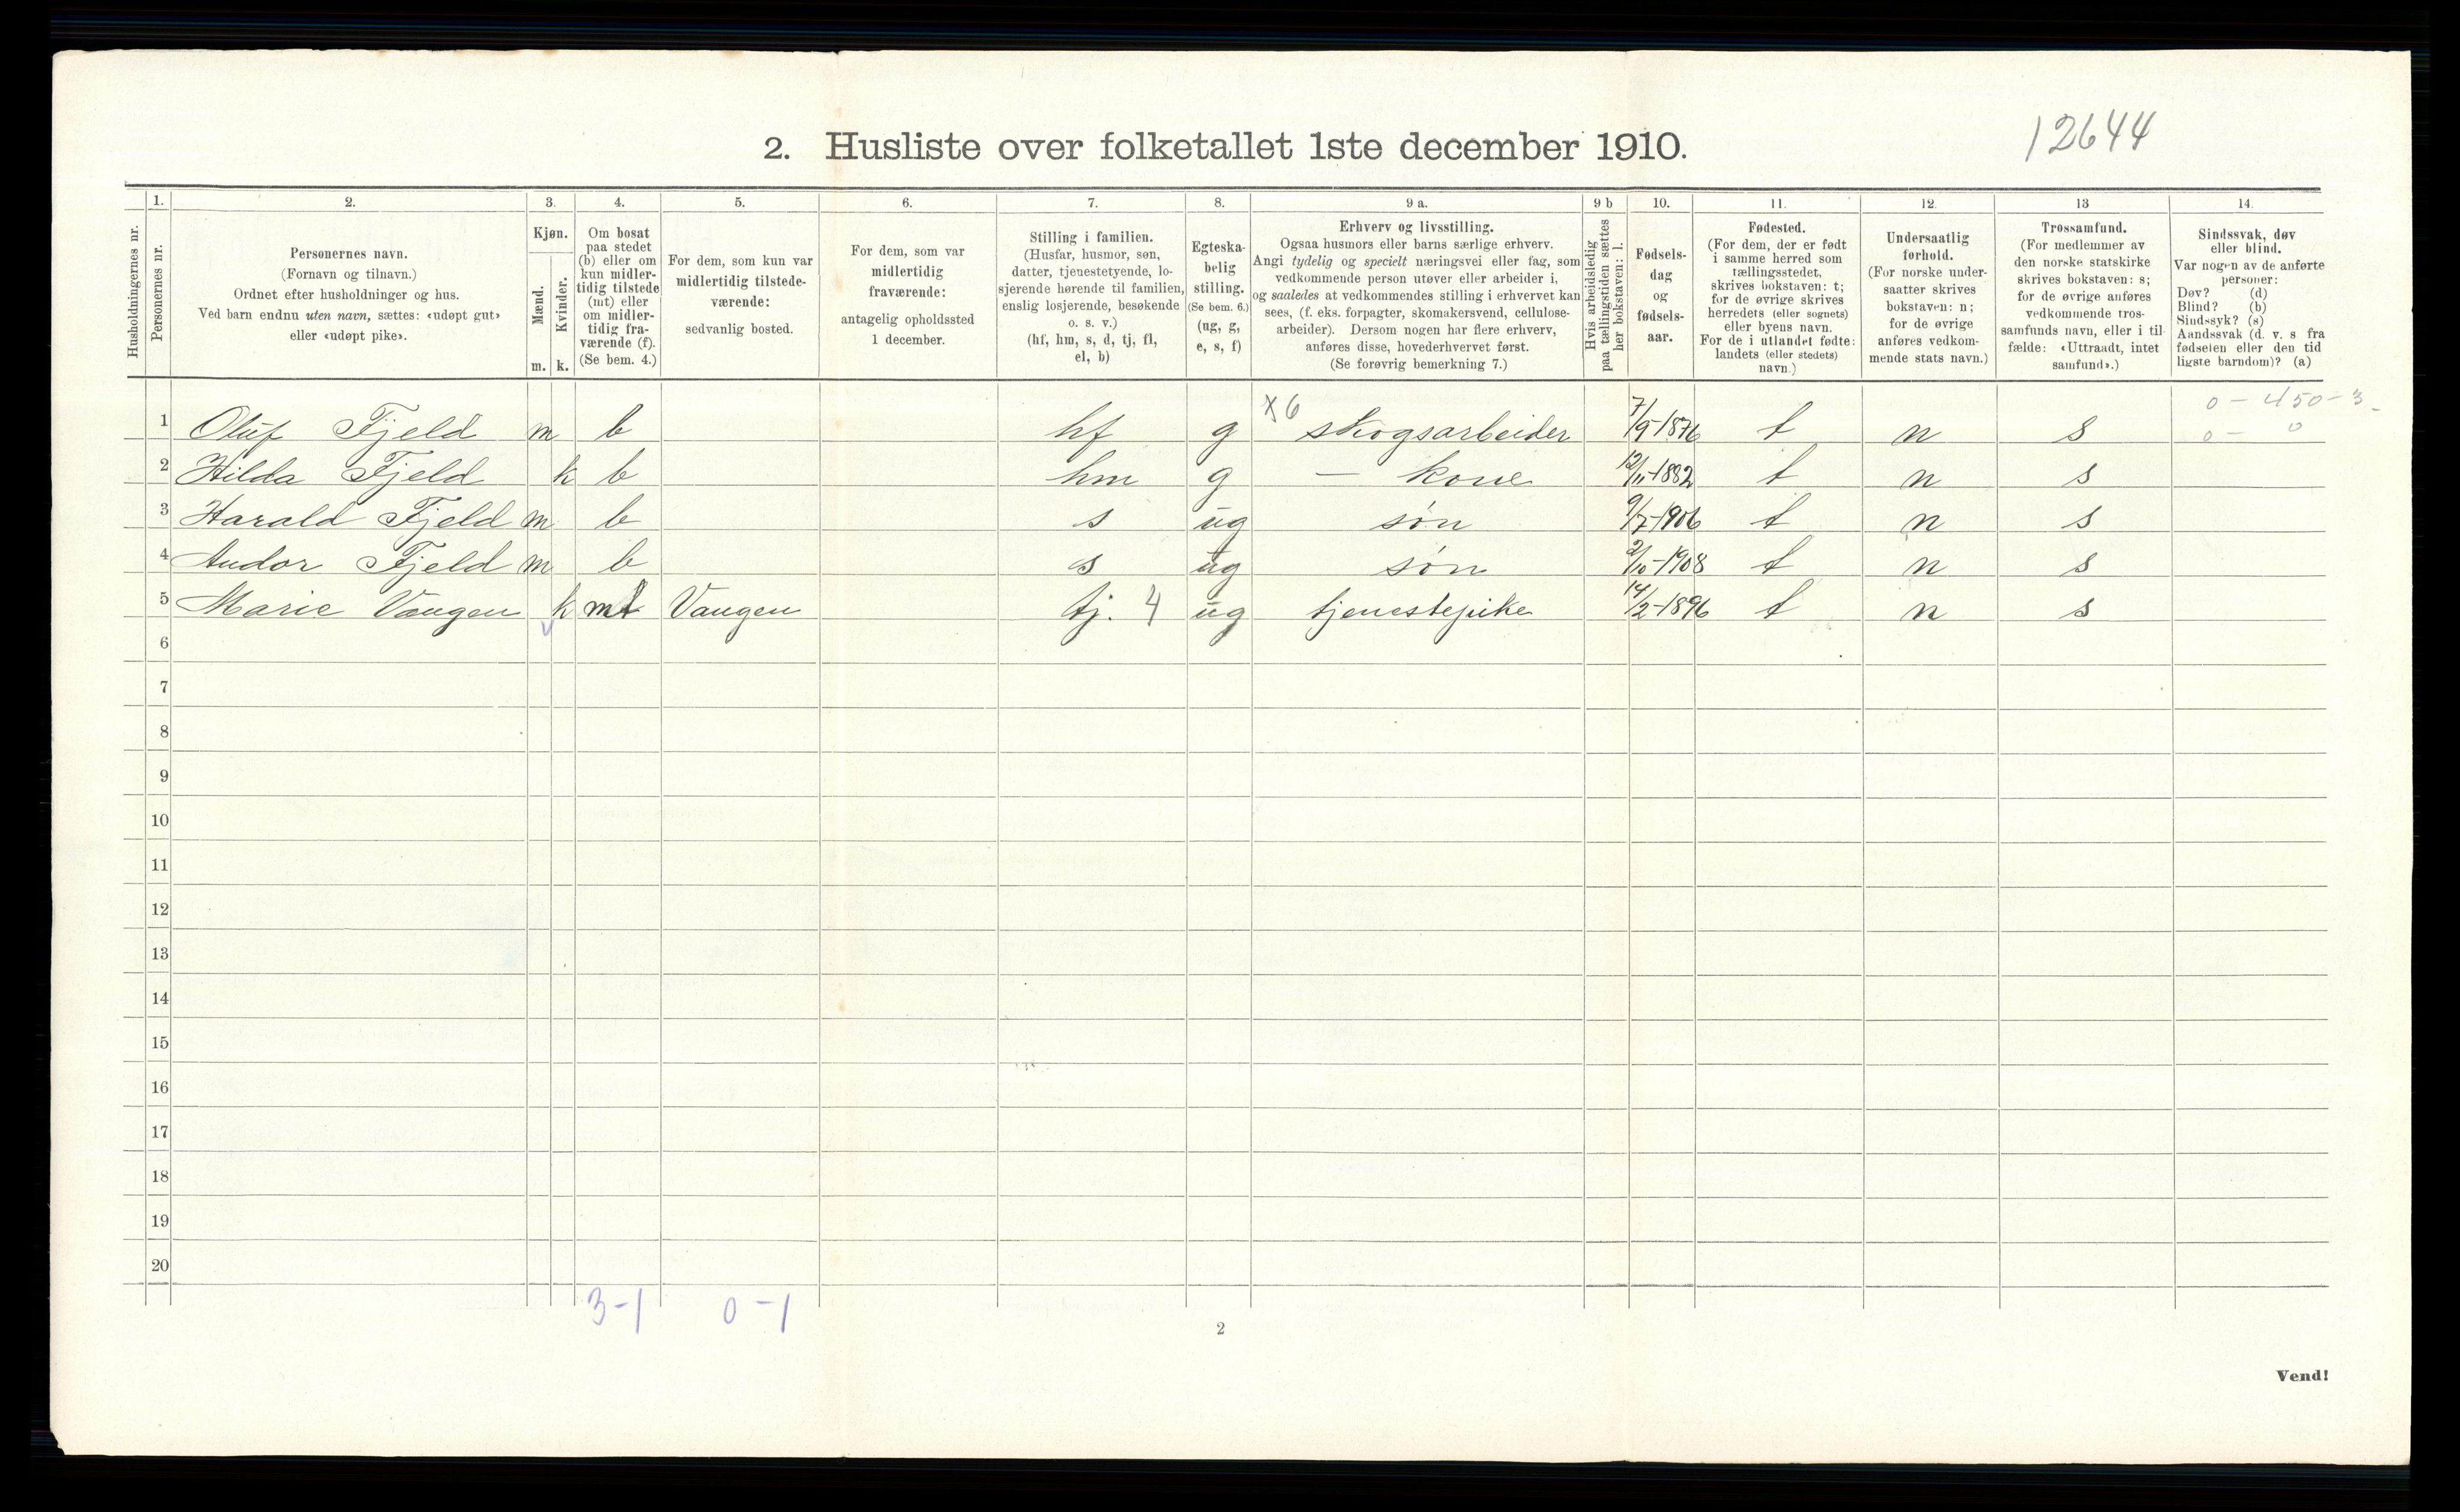 12644
2. Husliste over folketallet 1ste december 1910.
Husholdningernes nr.
1. Personernes nr.
2. Personernes navn. (Fornavn og tilnavn.) Ordnet efter husholdninger og hus. Ved barn endnu uten navn, sættes: «udøpt gut» eller «udøpt pike».
3. Kjøn. Mænd. m. Kvinder. k.
4. Om bosat paa stedet (b) eller om kun midlertidig tilstede (mt) eller om midlertidig fraværende (f). (Se bem. 4.)
5. For dem, som kun var midlertidig tilstedeværende: sedvanlig bosted.
6. For dem, som var midlertidig fraværende: antagelig opholdssted 1 december.
7. Stilling i familien. (Husfar, husmor, søn, datter, tjenestetyende, losjerende hørende til familien, enslig losjerende, besøkende o. s. v.) (hf, hm, s, d, tj, fl, el, b)
8. Egteskabelig stilling. (Se bem. 6.) (ug, g, e, s, f)
9 a. Erhverv og livsstilling. Ogsaa husmors eller barns særlige erhverv. Angi tydelig og specielt næringsvei eller fag, som vedkommende person utøver eller arbeider i, og saaledes at vedkommendes stilling i erhvervet kan sees, (f. eks. forpagter, skomakersvend, cellulosearbeider). Dersom nogen har flere erhverv, anføres disse, hovederhvervet først. (Se forøvrig bemerkning 7.)
9 b Hvis arbeidsledig paa tællingstiden sættes her bokstaven: l.
10. Fødselsdag og fødselsaar.
11. Fødested. (For dem, der er født i samme herred som tællingsstedet, skrives bokstaven: t; for de øvrige skrives herredets (eller sognets) eller byens navn. For de i utlandet fødte: landets (eller stedets) navn.)
12. Undersaatlig forhold. (For norske undersaatter skrives bokstaven: n; for de øvrige anføres vedkommende stats navn.)
13 Trossamfund. (For medlemmer av den norske statskirke skrives bokstaven: s; for de øvrige anføres vedkommende trossamfunds navn, eller i tilfælde: «Uttraadt, intet samfund».)
14. Sindssvak, døv eller blind. Var nogen av de anførte personer: Døv? (d) Blind? (b) Sindssyk? (s) Aandssvak (d. v. s fra fødselen eller den tidligste barndom)? (a)
X6 0 - 450 - 3
1 Oluf Fjeld m b hf g skogsarbeider 7/9-1876 t n s 0 - 0
2 Hilda Fjeld k b hm g — kone 12/11-1882 t n s
3 Harald Fjeld m b s ug søn 9/7-1906 t n s
4 Andor Fjeld m b s ug søn 2/10-1908 t n s
5 Marie Vangen k mt Vangen tj. 4 ug tjenestepike 14/2-1896 t n s
6
7
8
9
10
11
12
13
14
15
16
17
18
19
20
3-1 0-1
2
Vend!